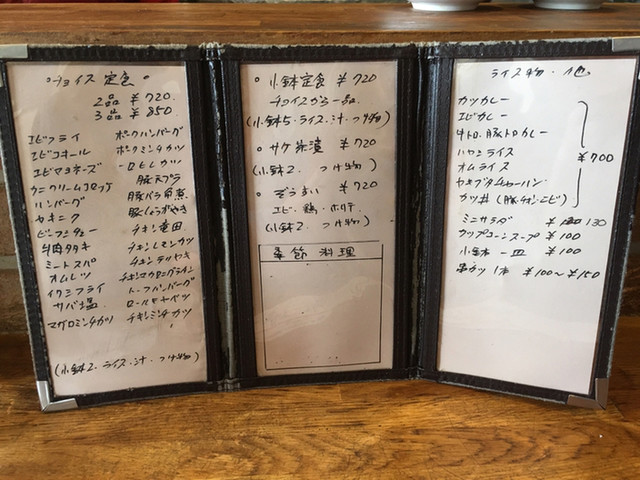 チョイス 定食
2品 ¥720.
3品 ¥850
エビフライ ポークハンバーグ
エビコロール ポークミンチカツ
エビマヨネーズ 一口ヒレカツ
カニクリームコロッケ 豚天プラ
ハンバーグ 豚バラ角煮
ヤキニク 豚しょうがやき
ビーフシチュー チキン竜田
牛肉タタキ チキンレモンカツ
ミートスパ チキンテリヤキ
オムレツ チキンマカロニグラタン
イクミフライ トーフハンバーグ
サバ塩 ロールキャベツ
マグロミンチカツ チキンミンチカツ
(小鉢2. ライス.汁.つけ物)
小鉢定食 ¥720
チョイスから一品
(小鉢5.ライス.汁.つけ物)
サケ茶漬 ¥720
(小鉢2. つけ物)
ぞうすい ¥720
エビ・鶏・ホタテ
(小鉢2. つけ物)
季節料理
ライス物・他
カツカレー
エビカレー
牛トロ・豚トロカレー
ハヤシライス
¥700
オムライス
ヤキブタチャーハン
カツ丼(豚・チキン・エビ)
ミニサラダ ¥ 130
カップコーンスープ ¥100
小鉢 一皿 ¥100
串カツ 1本 ¥100〜¥150